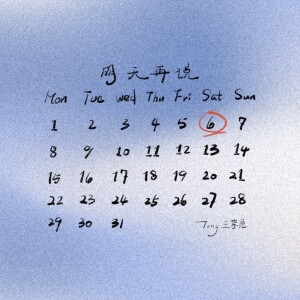 明天再说
Mon Tue wed Thu Fri Sat Sun
1 2 3 4 5 6 7
8 9 10 11 12 13 14
15 16 17 18 19 20 21
22 23 24 25 26 27 28
29 30 31